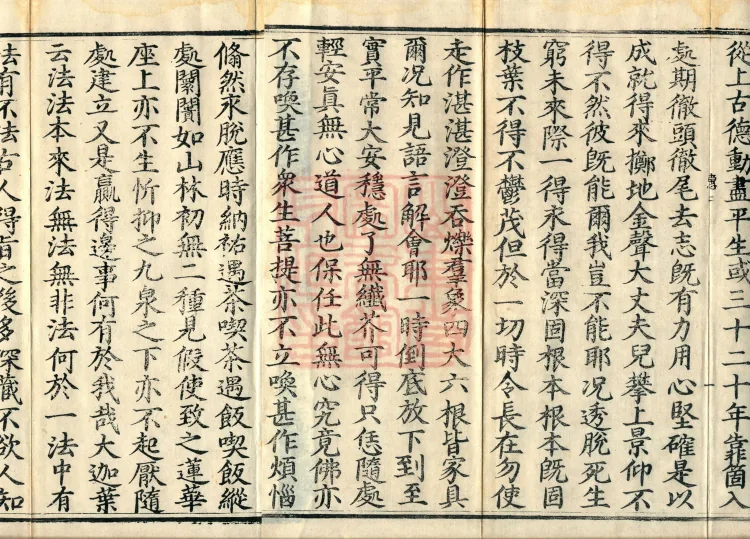 從上古德動盡平生或三十二十年靠箇入
處期徹頭徹尾去志旣有力用心堅確是以
成就得來擲地金聲大丈夫兒攀上景仰不
得不然彼旣能爾我豈不能耶况透脫死生
窮未來際一得永得當深固根本根本旣固
枝葉不得不鬱茂但於一切時令長在勿使
走作湛湛澄澄吞爍羣象四大六根皆家具
爾况知見語言解會耶一時倒底放下到至
實平常大安穩處了無纖芥可得只恁隨處
輕安眞無心道人也保任此無心究竟佛亦
不存喚甚作衆生菩提亦不立喚甚作煩惱
翛然永脫應時納祐遇茶喫茶遇飯喫飯縱
處闤闠如山林初無二種見假使致之蓮華
座上亦不生忻抑之九泉之下亦不起厭隨
處建立又是贏得邊事何有於我哉大迦葉
云法法本來法無法無非法何於一法中有
法有不法古人得旨之後多深藏不欲人知